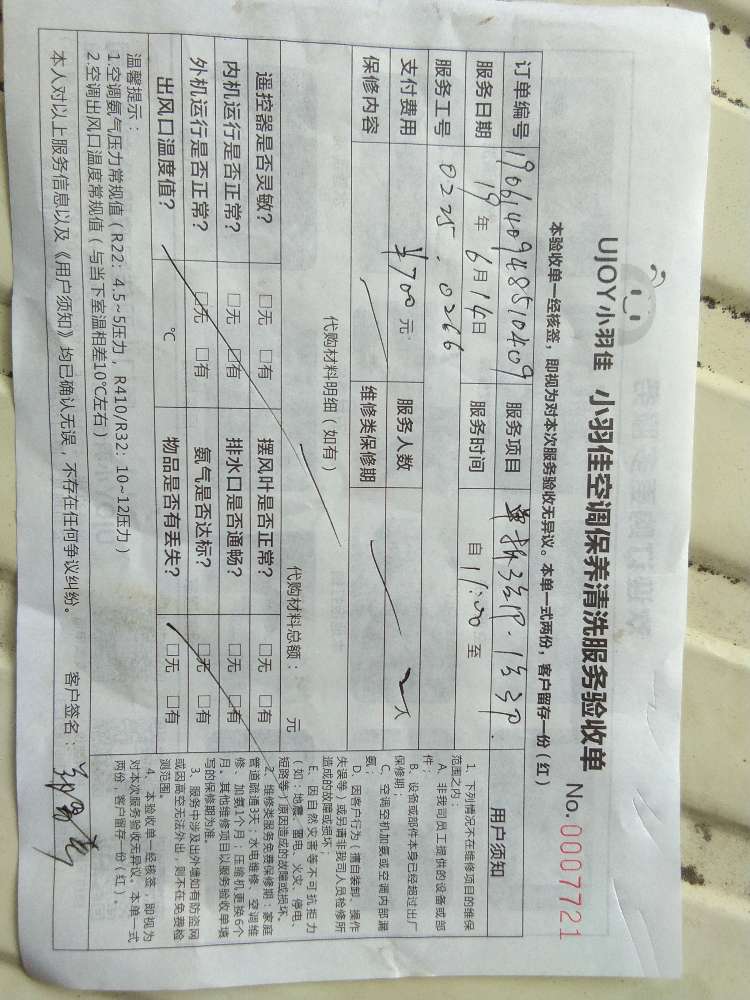 UJOY小羽佳 小羽佳空调保养清洗服务验收单
No.0007721
本验收单一经核签，即视为对本次服务验收无异议。本单一式两份，客户留存一份（红）
订单编号 1906140948510409 服务项目 单拆3台1P.1台3P.
服务日期 19年6月14日 服务时间 自11:00至
服务工号 0225.0266
支付费用 ¥700元 服务人数 2人
保修内容 维修类保修期
代购材料明细（如有）
代购材料总额： 元
遥控器是否灵敏？ □无 □有 摆风叶是否正常？ □无 □有
内机运行是否正常？ □无 □有 排水口是否通畅？ □无 □有
外机运行是否正常？ □无 □有 氨气是否达标？ □无 □有
出风口温度值？ ℃ 物品是否有丢失？ □无 □有
温馨提示：
1.空调氨气压力常规值（R22：4.5~5压力，R410/R32：10~12压力）
2.空调出风口温度常规值（与当下室温相差10℃左右）
本人对以上服务信息以及《用户须知》均已确认无误，不存在任何争议纠纷。 客户签名：
用户须知
1、下列情况不在维修项目的维保
范围之内：
A、非我司员工提供的设备或部
件；
B、设备或部件本身已经超过出厂
保修期；
C、空调空机加氨或空调内部漏
氨；
D、因客户行为（擅自装卸、操作
失误等）或另请非我司人员检修所
造成的故障或损坏；
E、因自然灾害等不可抗拒力
（如：地震、雷电、火灾、停电、
短路等）原因造成的故障或损坏。
2、维修类服务免费保修期：家庭
管道疏通3天；水电维修、空调维
修、加氨1个月；压缩机更换6个
月。其他维修项目以服务验收单填
写的保修期为准。
3、服务中涉及出外墙如有防盗网
或因高空无法外出，则不在免费检
测范围。
4、本验收单一经核签，即视为
对本次服务验收无异议。本单一式
两份，客户留存一份（红）。